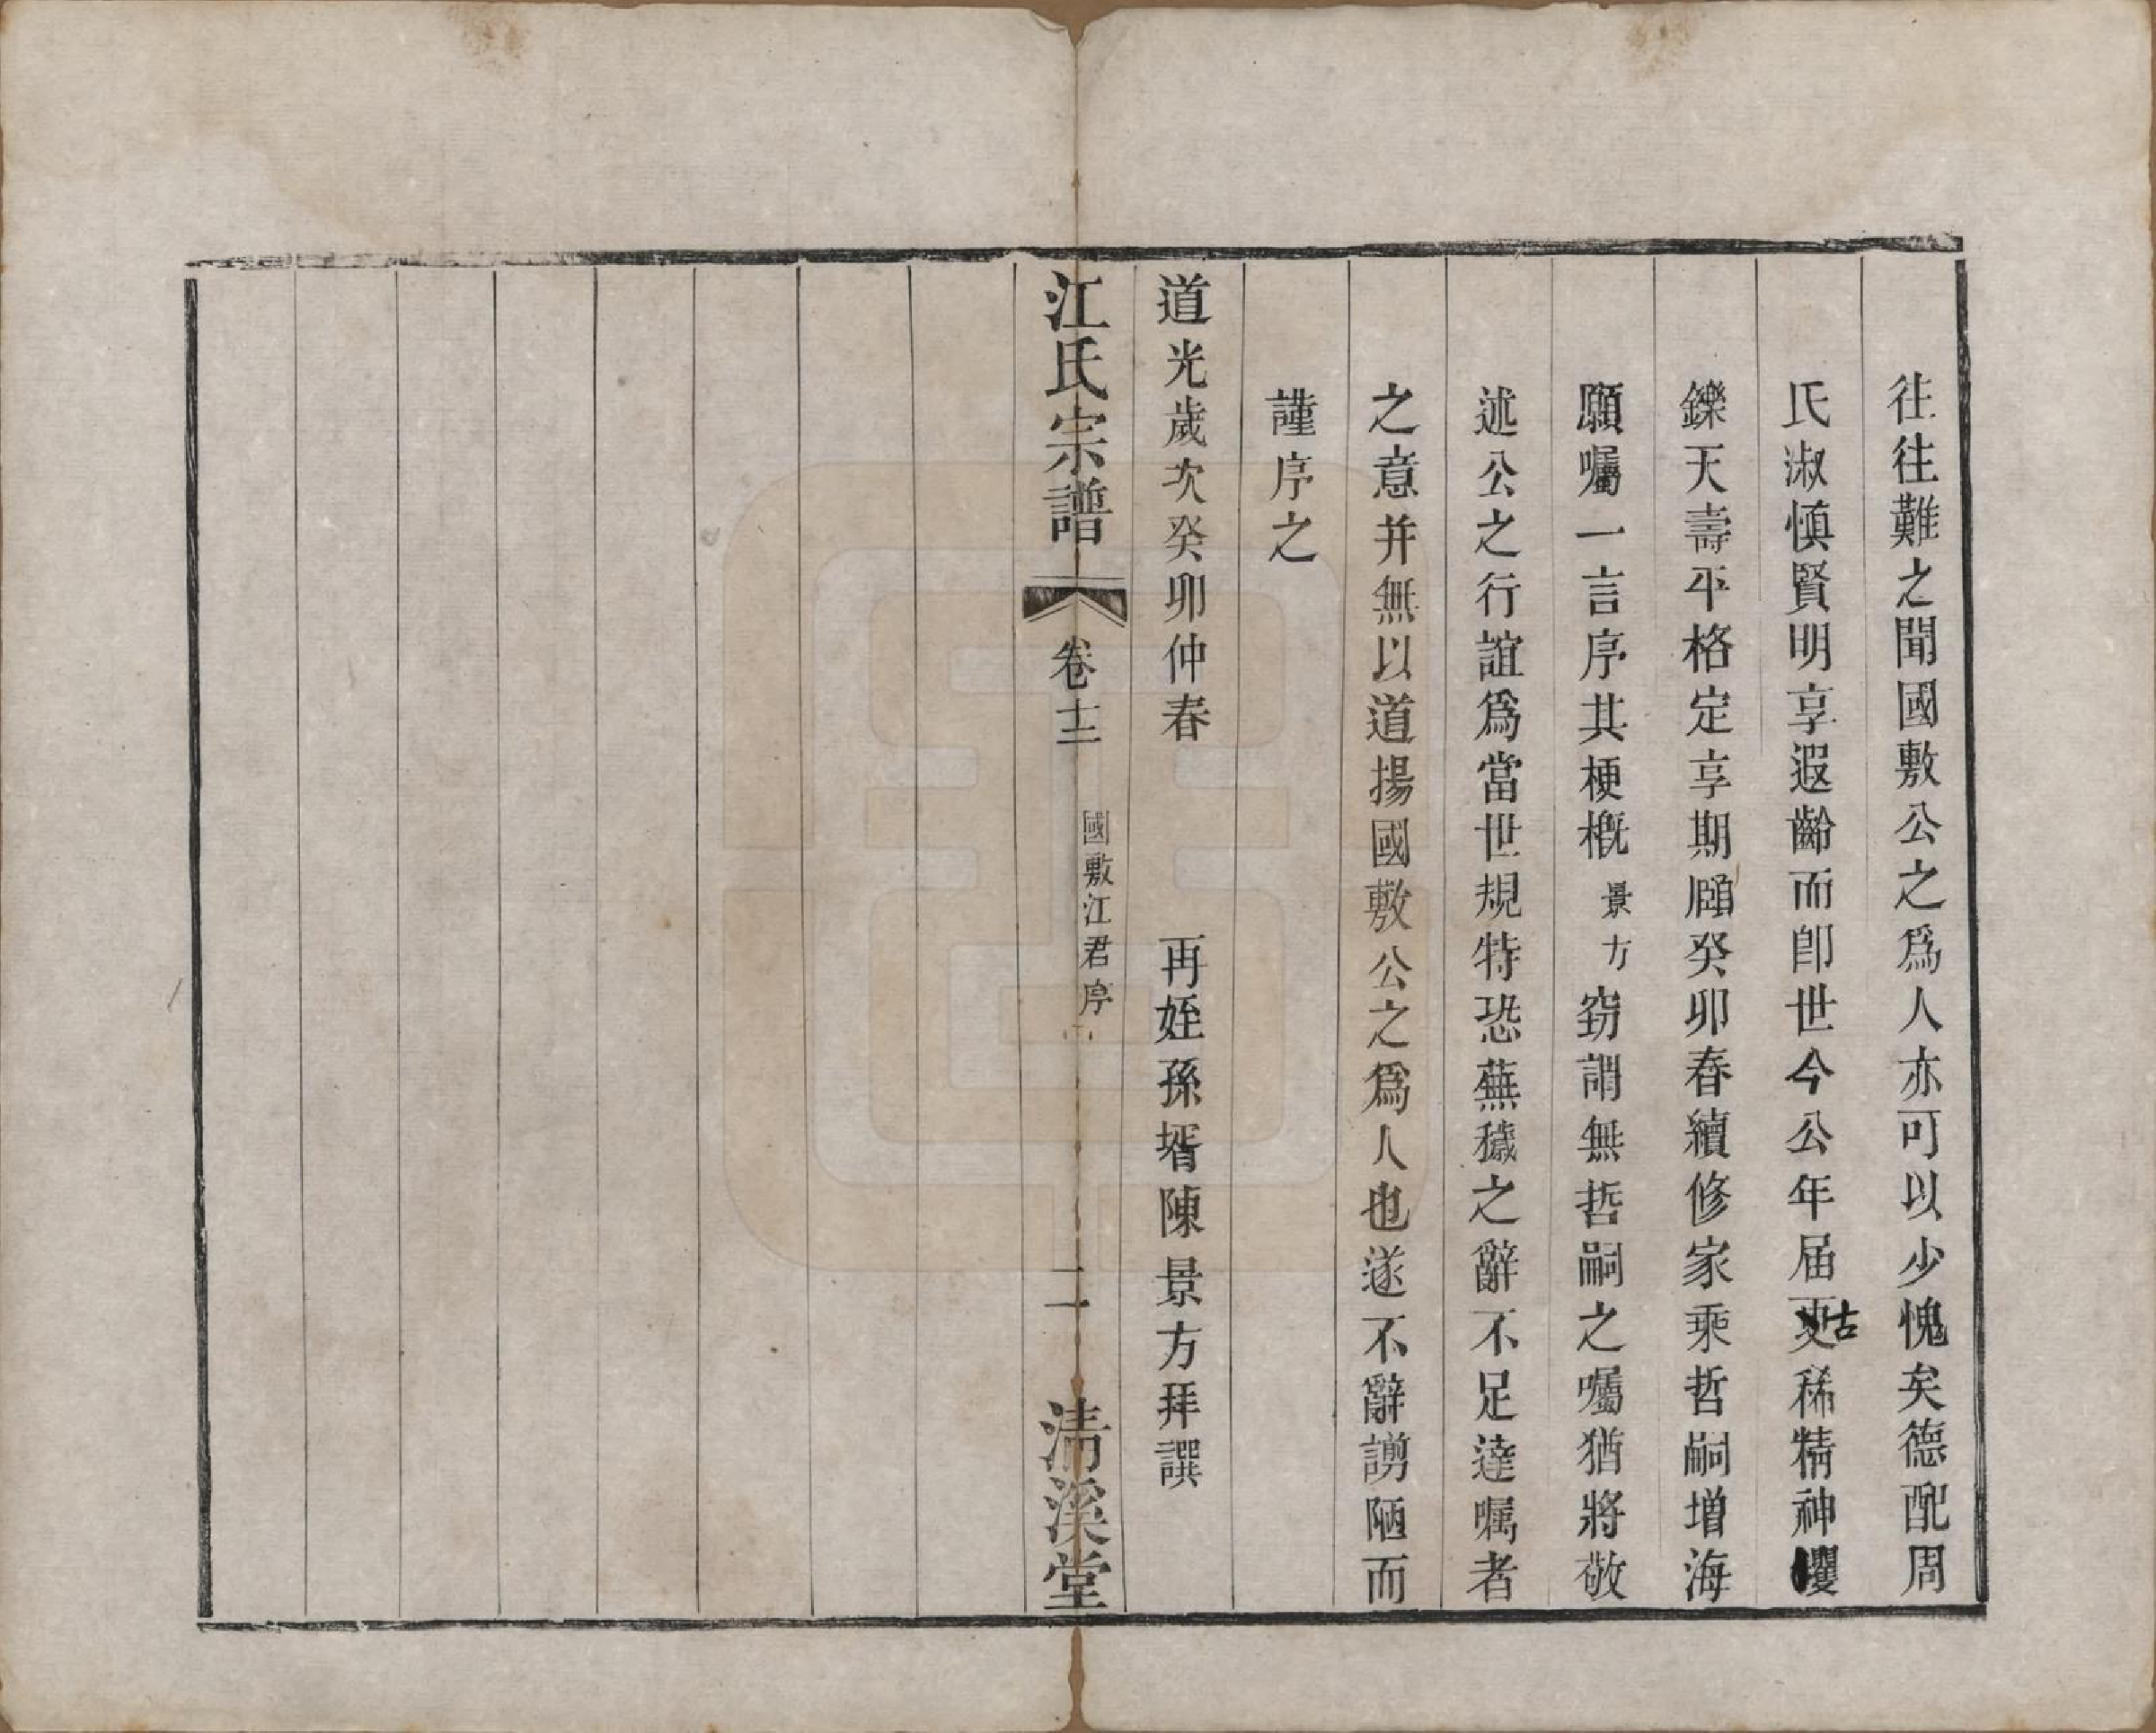 往往難之聞國敷公之爲人亦可以少愧矣德配周
氏淑慎賢明享遐齡而卽世今公年届古稀精神矍
鑠天壽平格定享期頤癸卯春續修家乘哲嗣增海
願囑一言序其梗槪景方窃謂無哲嗣之囑猶將敬
述公之行誼爲當世規特恐蕪穢之辭不足達嘱者
之意并無以道揚國敷公之爲人也遂不辭譾陋而
謹序之
道光歲次癸卯仲春 再姪孫壻陳景方拜譔
江氏宗譜 卷十二 國敷江君序 二 淸溪堂